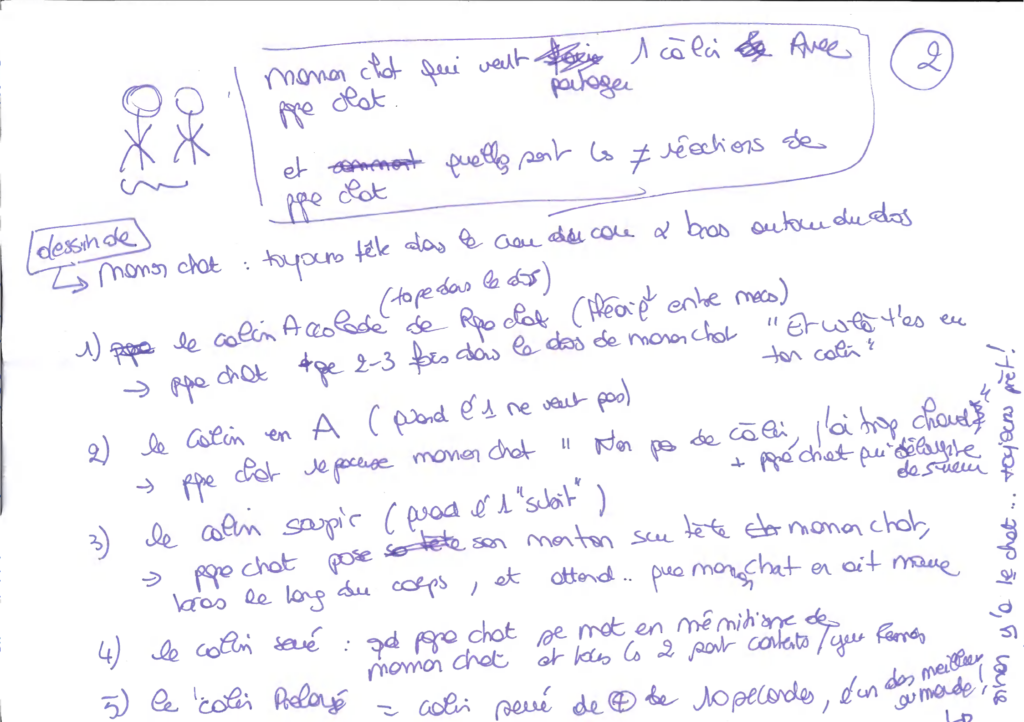 2
maman chat qui veut partager 1 câlin Avec
ppe chat.
et quelles sont les ≠ réactions de
ppe chat
dessin de
↳ maman chat : toujours tête dans le creu du cou & bras autour du dos
(tape dans le dos)
1) le calin Accolade de Ppe chat ( entre mecs)
→ ppe chat tape 2-3 fois dans le dos de maman chat "Et voilà t'es eu
ton calin"
2) le calin en A (quand l'1 ne veut pas)
→ ppe chat repousse maman chat "Non pas de câlin, j'ai trop chaud"
+ ppe chat qui dégouline
de sueur
3) le calin soupir (quand l'1 "subit")
→ ppe chat pose son menton sur tête maman chat,
bras le long du corps, et attend.. que maman chat en ait marre
4) le calin serré : qd ppe chat se met en mimétisme de
maman chat et tous les 2 sont contents / yeux fermés
5) le calin Prolongé = calin serré de ⊕ de 10 secondes, l'un des meilleurs
au monde !
sinon y'a le chat... toujours prêt!